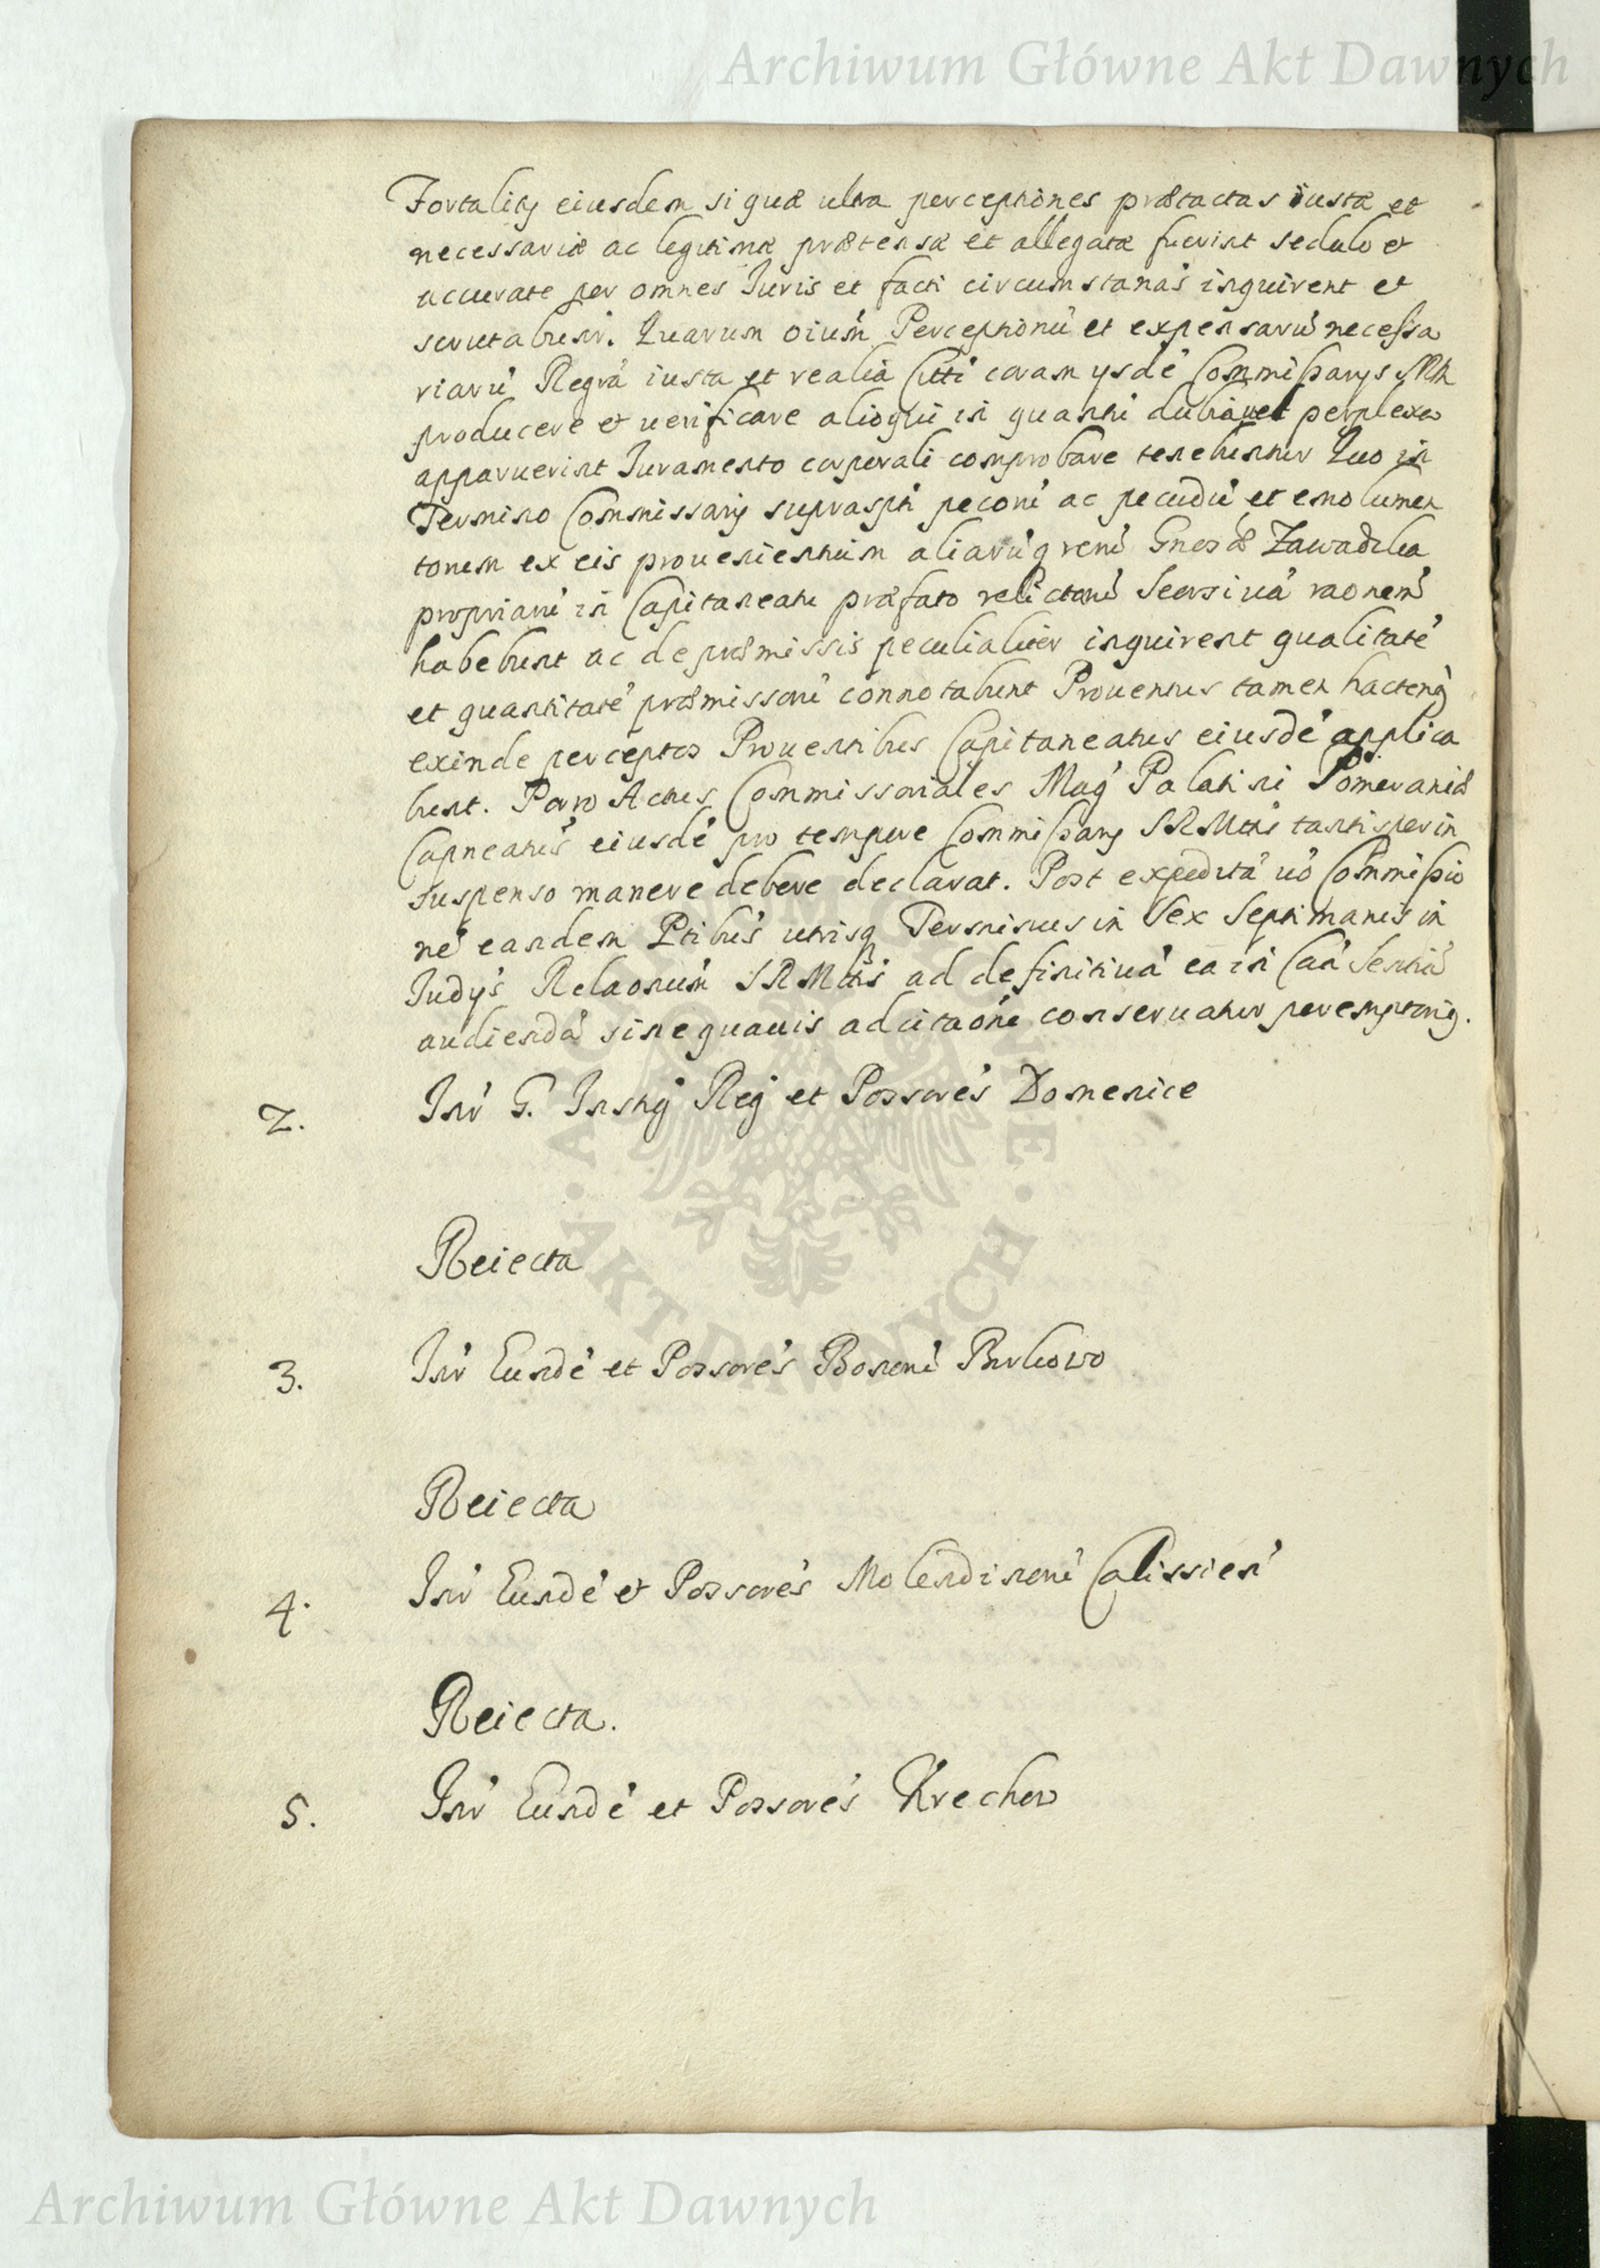 Archiwum Główne Akt Dawnych
Fortalitÿ eiusdem si quæ ultra perceptiones prætactas iustæ et
necessariæ ac legitimæ prætensæ et allegatæ fuerint sedulo et
accurate per omnes Iuris et facti circumstanās inquirent et
scrutabunt. Quarum oium̄ Perceptionū et expensarū necessa
riarū Regrā iusta et realia Citti coram ysdē Commissarys
producere et verificare alioqui in quantū dubia vel perplexa
apparuerint Iuramento corporali comprobare tenebuntur Quo in
Termino Commissarÿ suprascpti pecorū ac pecudū et emolumen
torum ex eis provenientium aliarūq rerū Gnosæ Zawadzka
propriarū in Capitaneatu præfato relictarū seorsivā raonem
habebunt ac de præmissis peculialiter inquirent qualitatē
et quantitatē præmissorū connotabunt Proventus tamen hactenq
exinde perceptos Proventibus Capitaneatus eiusdē applica
bunt. Porro Actus Commissoriales Mag Palatini Pomeraniæ
Capneatus eiusdē pro tempore Commissarÿ SRMtis tantisper in
suspenso manere debere declarat. Post expeditā vō Commissio
nē eandem Ptibus utrisq Terminus in Sex Septimanis in
Iudÿs Relaonum SRMttis ad definitivā ea in Caā Sentiā
audiendā sine quavis adcitaōne conservatur peremptoriq.
2. Inr G. Instig Reg et Possorēs Domenice
Reiecta
3. Inr Eundē et Possorēs Bonorū
Reiecta
4. Inr Eundē et Possorēs Molendinorū Calissien
Reiecta.
5. Inr Eundē et Possorēs Krechow
ARCHIWUM GŁÓWNE · AKT DAWNYCH ·
Archiwum Główne Akt Dawnych